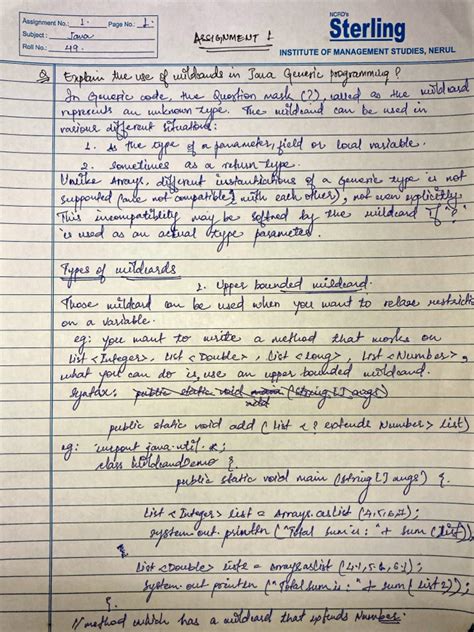 Assignment No.: 1 Page No.: 1
Subject: Java
Roll No.: 49
ASSIGNMENT 1
NCRD's
Sterling
INSTITUTE OF MANAGEMENT STUDIES, NERUL
Q Explain the use of wildcards in Java Generic programming?
In Generic code, the Question mask (?), called as the wildcard
represents an unknown type. The wildcard can be used in
various different situations:
1. As the type of a parameter, field or local variable.
2. sometimes as a return type.
Unlike Arrays, different instantiations of a generic type is not
supported (are not compatible with each other), not even explicitly.
This incompatibility may be softned by the wildcard if '?'
is used as an actual type parameter.
Types of wildcards
1. Upper bounded wildcard.
These wildcard can be used when you want to relaxe restrictio
on a variable.
eg: you want to write a method that works on
List <Integers>, list <Double>, List <Long>, List <Number>,
what you can do is, use an upper bounded wildcard.
Syntax: public static void main (string [] args)
add
public static void add (list <? extends Number> list)
eg: import java.util.*;
class WildcardDemo {
public static void main (string [] args) {
list <Integer> list = Arrays.aslist (4,5,6,7);
system.out.println ("Total sum is: "+ sum (list));
List <Double> = arrays.aslist (4.1,5.1,6.1);
System.out.println ("Total sum is: "+ sum (list2));
}.
// method which has a wildcard that extends Number.